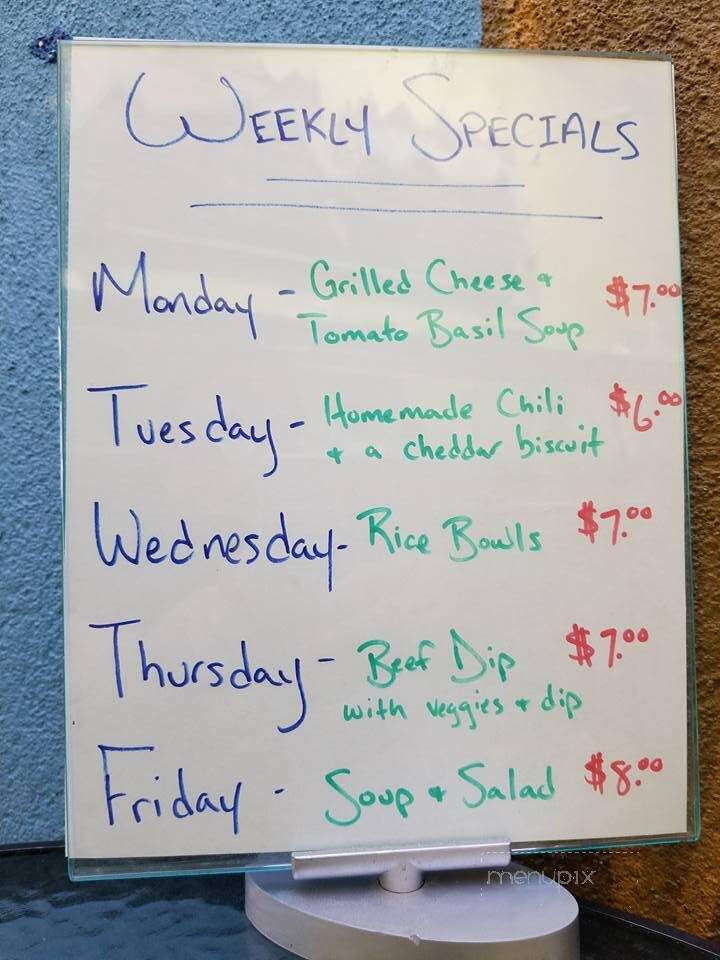 WEEKLY SPECIALS
Monday - Grilled Cheese + $7.00
Tomato Basil Soup
Tuesday - Homemade Chili $6.00
+ a cheddar biscuit
Wednesday - Rice Bowls $7.00
Thursday - Beef Dip $7.00
with veggies + dip
Friday - Soup + Salad $8.00
menupix